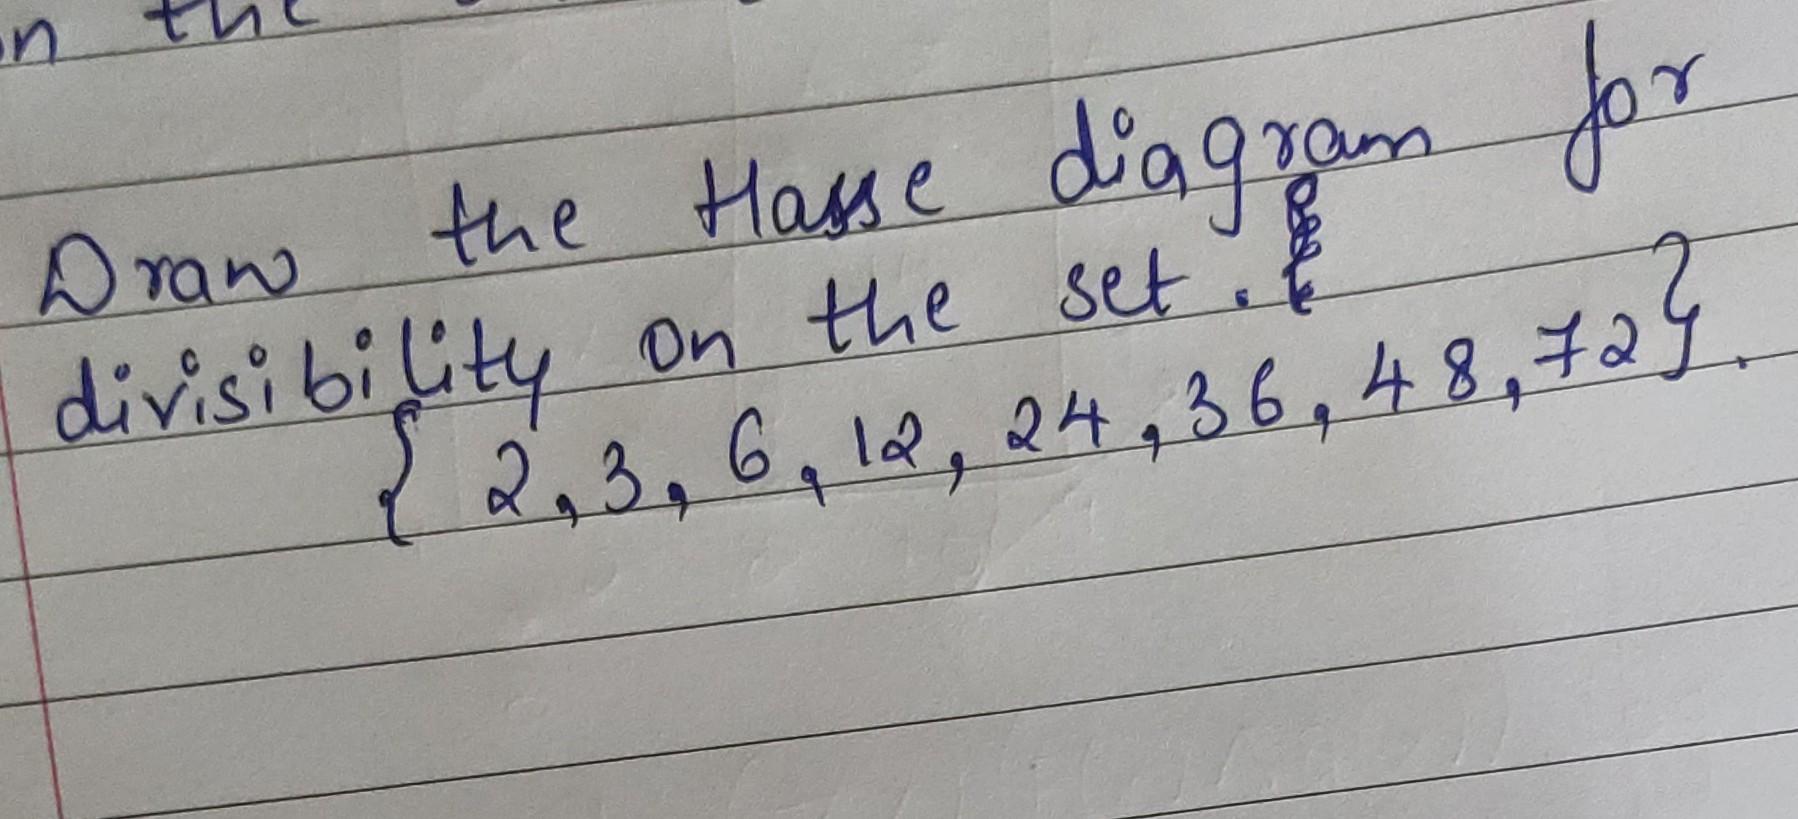 n the
Draw the Hasse diagram for
divisibility on the set.
{ 2, 3, 6, 12, 24, 36, 48, 72}.